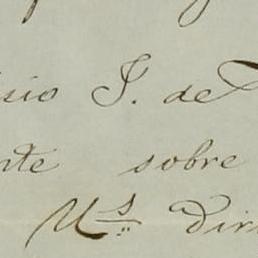 sio J. de
nte sobre
Us dir